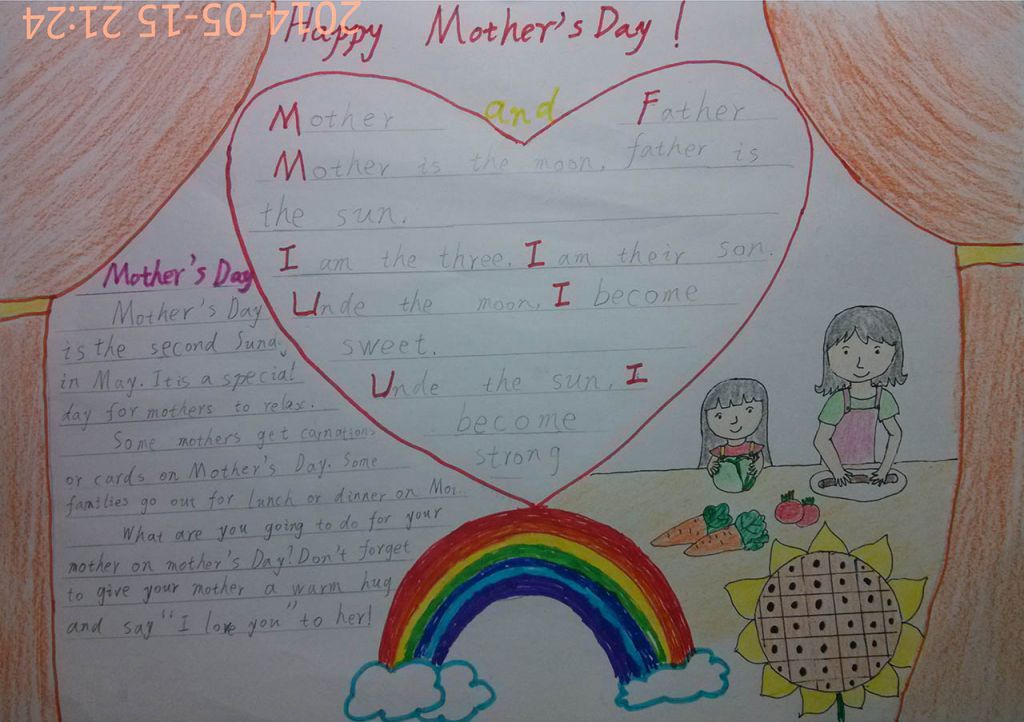 2014-05-15 21:24
Happy Mother's Day!
Mother and Father
Mother is the moon, father is
the sun.
I am the three, I am their son.
Unde the moon, I become
sweet.
Unde the sun, I
become
strong
Mother's Day
Mother's Day
is the second Sunay
in May. It is a special
day for mothers to relax.
Some mothers get carnations
or cards on Mother's Day. Some
families go out for lunch or dinner on
What are you going to do for your
mother on mother's Day? Don't forget
to give your mother a warm hug
and say "I love you" to her!